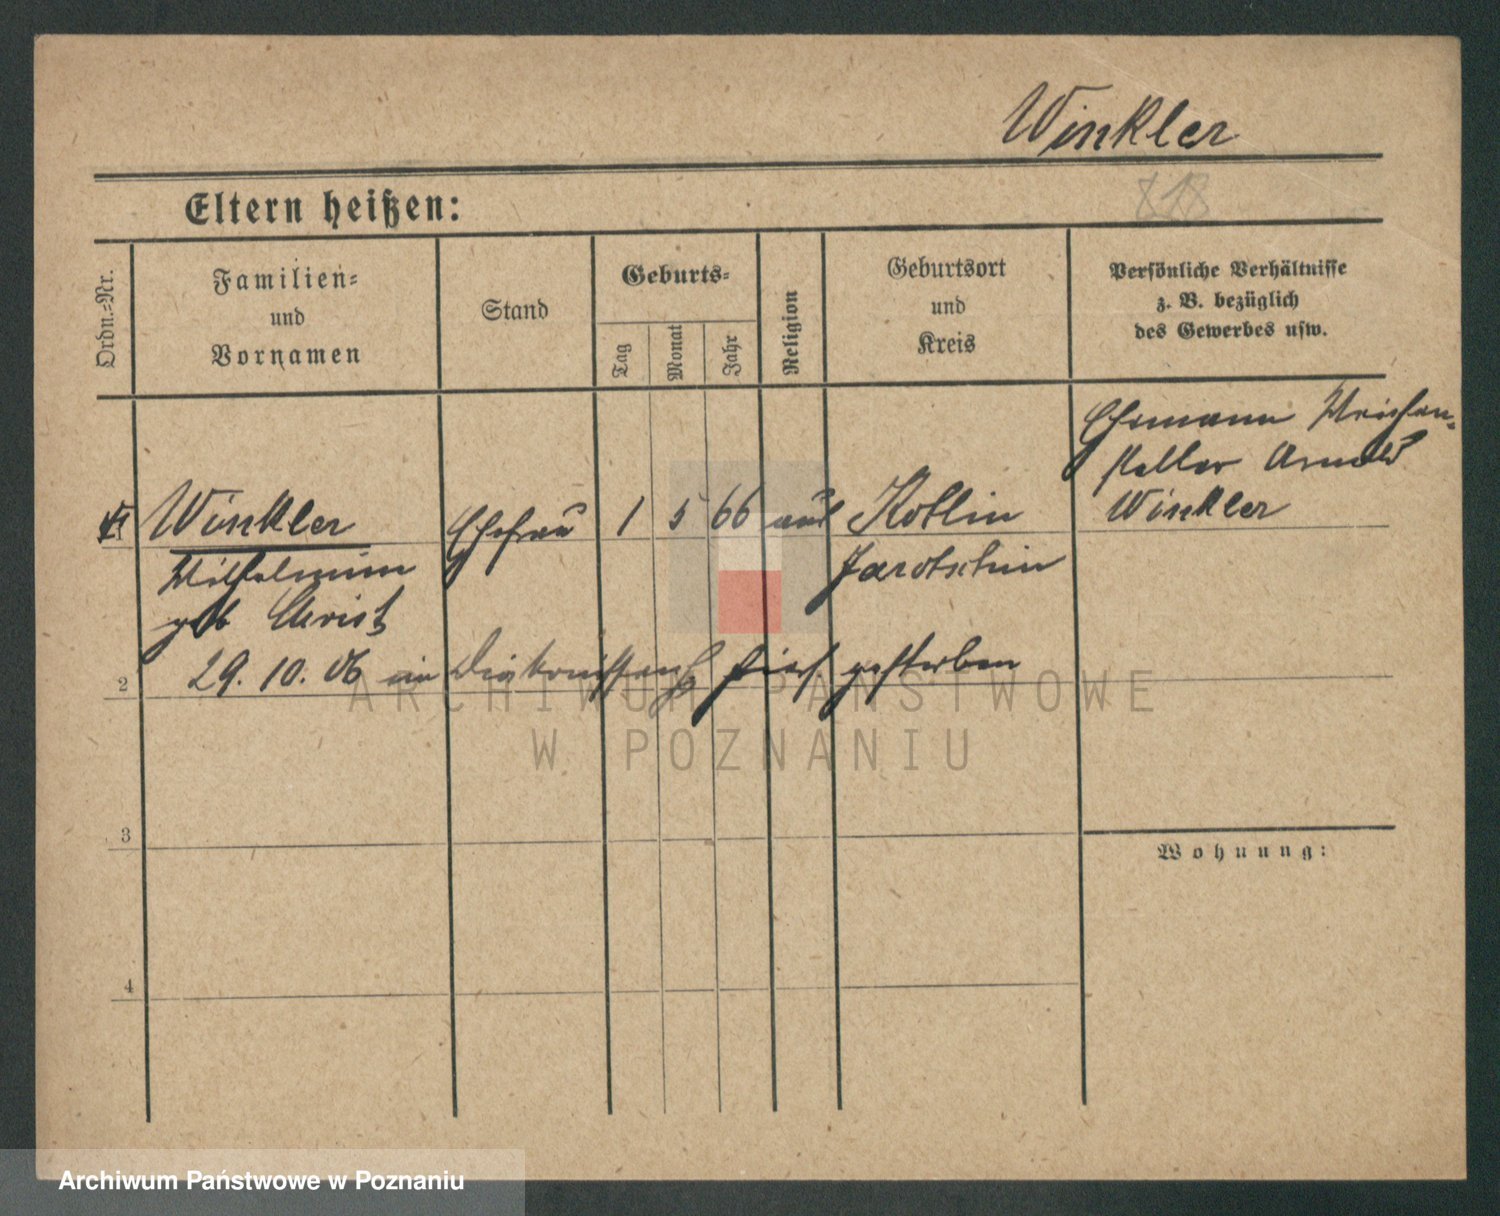 Winkler
818
Eltern heißen:
Ordn.-Nr.
Familien-
und
Vornamen
Stand
Geburts-
Tag
Monat
Jahr
Religion
Geburtsort
und
Kreis
Persönliche Verhältnisse
z. B. bezüglich
des Gewerbes usw.
Ehemann Weichen-
steller Arnold
Winkler
Winkler Ehefrau 1 5 66 Kotlin
Wilhelmine Jarotschin
geb Christ
2 29. 10. 06 im hier gestorben
3
Wohnung:
4
ARCHIWUM PAŃSTWOWE
W POZNANIU
Archiwum Państwowe w Poznaniu